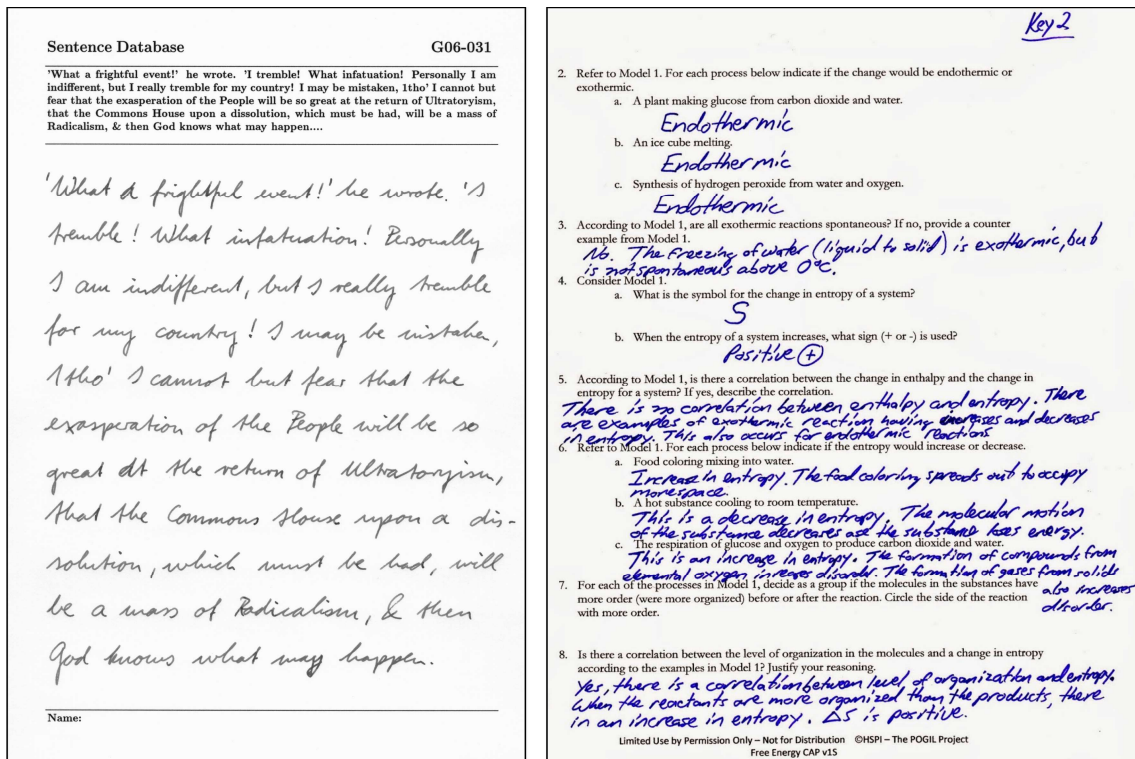 Sentence Database G06-031
'What a frightful event!' he wrote. 'I tremble! What infatuation! Personally I am
indifferent, but I really tremble for my country! I may be mistaken, 1tho' I cannot but
fear that the exasperation of the People will be so great at the return of Ultratoryism,
that the Commons House upon a dissolution, which must be had, will be a mass of
Radicalism, & then God knows what may happen....
'What a frightful event!' he wrote. 'I
tremble! What infatuation! Personally
I am indifferent, but I really tremble
for my country! I may be mistaken,
1tho' I cannot but fear that the
exasperation of the People will be so
great at the return of Ultratoryism,
that the Commons House upon a dis-
solution, which must be had, will
be a mass of Radicalism, & then
God knows what may happen.
Name:
Key 2
2. Refer to Model 1. For each process below indicate if the change would be endothermic or
exothermic.
a. A plant making glucose from carbon dioxide and water.
Endothermic
b. An ice cube melting.
Endothermic
c. Synthesis of hydrogen peroxide from water and oxygen.
Endothermic
3. According to Model 1, are all exothermic reactions spontaneous? If no, provide a counter
example from Model 1.
No. The freezing of water (liquid to solid) is exothermic, but
is not spontaneous above 0°C.
4. Consider Model 1.
a. What is the symbol for the change in entropy of a system?
S
b. When the entropy of a system increases, what sign (+ or -) is used?
Positive (+)
5. According to Model 1, is there a correlation between the change in enthalpy and the change in
entropy for a system? If yes, describe the correlation.
There is no correlation between enthalpy and entropy. There
are examples of exothermic reaction having increases and decreases
in entropy. This also occurs for endothermic reactions
6. Refer to Model 1. For each process below indicate if the entropy would increase or decrease.
a. Food coloring mixing into water.
Increase in entropy. The food coloring spreads out to occupy
more space.
b. A hot substance cooling to room temperature.
This is a decrease in entropy. The molecular motion
of the substance decreases ase the substance loses energy.
c. The respiration of glucose and oxygen to produce carbon dioxide and water.
This is an increase in entropy. The formation of compounds from
elemental oxygen increases disorder. The formation of gases from solids
also increases
disorder.
7. For each of the processes in Model 1, decide as a group if the molecules in the substances have
more order (were more organized) before or after the reaction. Circle the side of the reaction
with more order.
8. Is there a correlation between the level of organization in the molecules and a change in entropy
according to the examples in Model 1? Justify your reasoning.
Yes, there is a correlation between level of organization and entropy.
When the reactants are more organized than the products, there
in an increase in entropy. ΔS is positive.
Limited Use by Permission Only – Not for Distribution ©HSPI – The POGIL Project
Free Energy CAP v1S